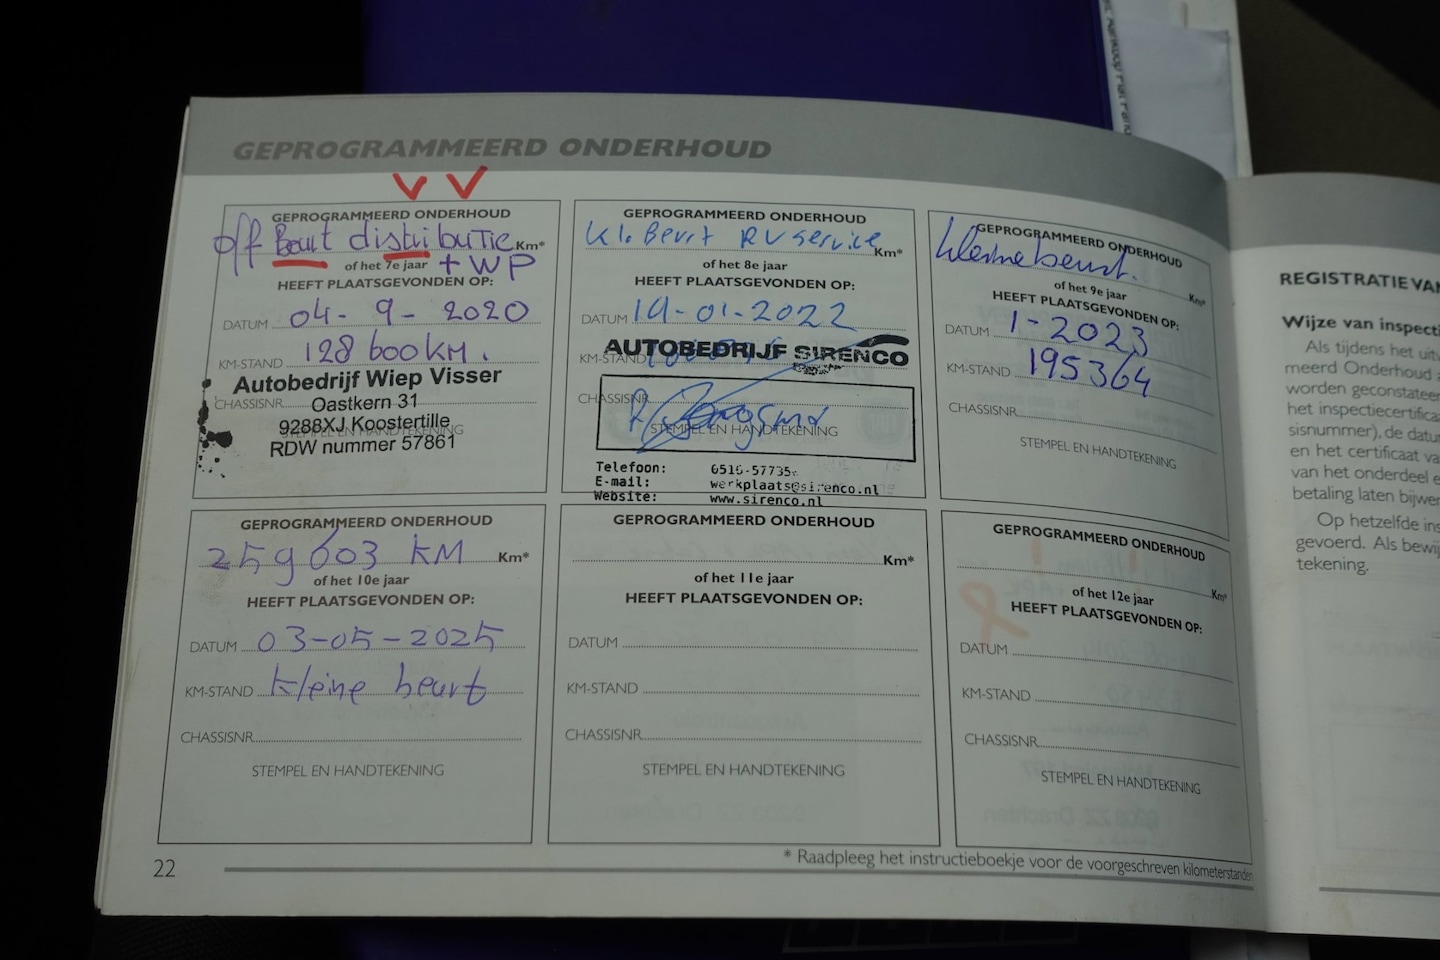 GEPROGRAMMEERD ONDERHOUD
GEPROGRAMMEERD ONDERHOUD
off Beurt distributie Km*
of het 7e jaar + WP
HEEFT PLAATSGEVONDEN OP:
DATUM 04-9-2020
KM-STAND 128600 KM.
Autobedrijf Wiep Visser
CHASSISNR. Oastkern 31
9288XJ Koostertille
STEMPEL EN HANDTEKENING
RDW nummer 57861
GEPROGRAMMEERD ONDERHOUD
Kl. Beurt RV service Km*
of het 8e jaar
HEEFT PLAATSGEVONDEN OP:
DATUM 19-01-2022
KM-STAND
AUTOBEDRIJF SIRENCO
CHASSISNR
STEMPEL EN HANDTEKENING
Telefoon: 0516-57735
E-mail: werkplaats@sirenco.nl
Website: www.sirenco.nl
GEPROGRAMMEERD ONDERHOUD
kleine beurt. Km*
of het 9e jaar
HEEFT PLAATSGEVONDEN OP:
DATUM 1-2023
KM-STAND 195364
CHASSISNR
STEMPEL EN HANDTEKENING
GEPROGRAMMEERD ONDERHOUD
259603 KM Km*
of het 10e jaar
HEEFT PLAATSGEVONDEN OP:
DATUM 03-05-2025
KM-STAND kleine beurt
CHASSISNR
STEMPEL EN HANDTEKENING
GEPROGRAMMEERD ONDERHOUD
Km*
of het 11e jaar
HEEFT PLAATSGEVONDEN OP:
DATUM
KM-STAND
CHASSISNR
STEMPEL EN HANDTEKENING
GEPROGRAMMEERD ONDERHOUD
Km*
of het 12e jaar
HEEFT PLAATSGEVONDEN OP:
DATUM
KM-STAND
CHASSISNR
STEMPEL EN HANDTEKENING
22
* Raadpleeg het instructieboekje voor de voorgeschreven kilometerstanden
REGISTRATIE VAN
Wijze van inspecti
Als tijdens het uit
meerd Onderhoud
worden geconstateer
het inspectiecertifica
sisnummer), de datu
en het certificaat va
van het onderdeel e
betaling laten bijwer
Op hetzelfde ins
gevoerd. Als bewij
tekening.